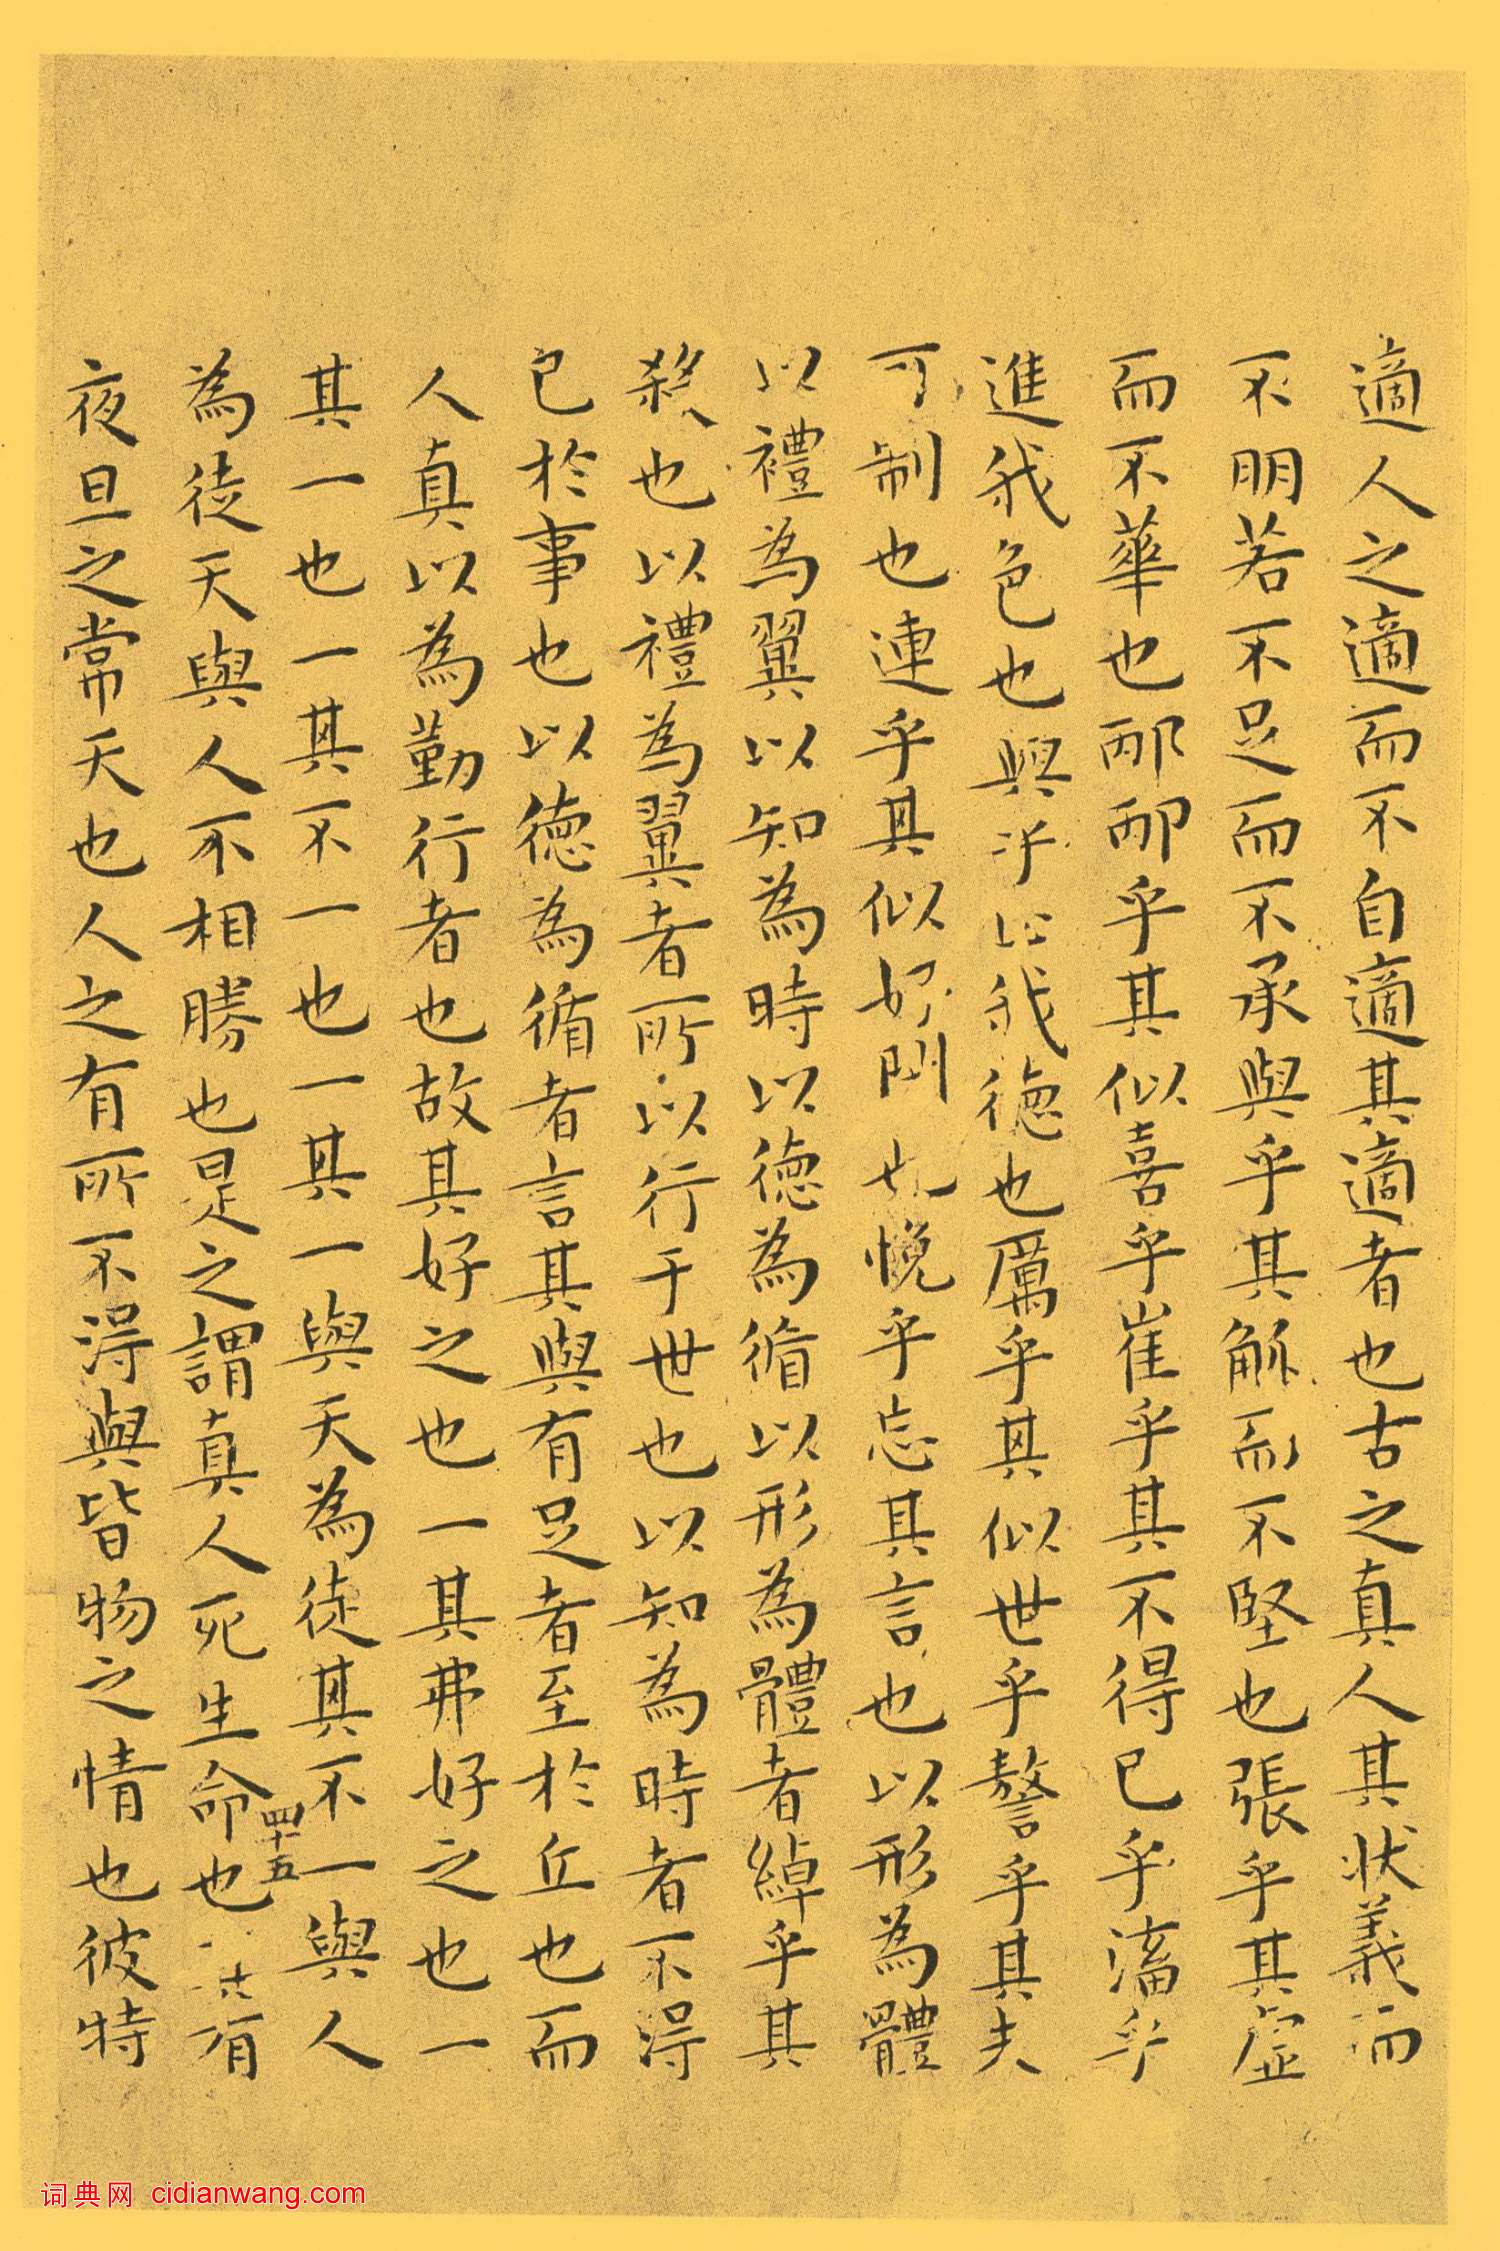 適人之適而不自適其適者也古之真人其狀義而
不朋若不足而不承與乎其觚而不堅也張乎其虛
而不華也邴邴乎其似喜乎崔乎其不得已乎滀乎
進我色也與乎止我德也厲乎其似世乎謷乎其未
可制也連乎其似好閉也悅乎忘其言也以形為體
以禮為翼以知為時以德為循以形為體者綽乎其
殺也以禮為翼者所以行于世也以知為時者不得
已於事也以德為循者言其與有足者至於丘也而
人真以為勤行者也故其好之也一其弗好之也一
其一也一其不一也一其一與天為徒其不一與人
四十五
為徒天與人不相勝也是之謂真人死生命也其有
夜旦之常天也人之有所不得與皆物之情也彼特
词典网 cidianwang.com